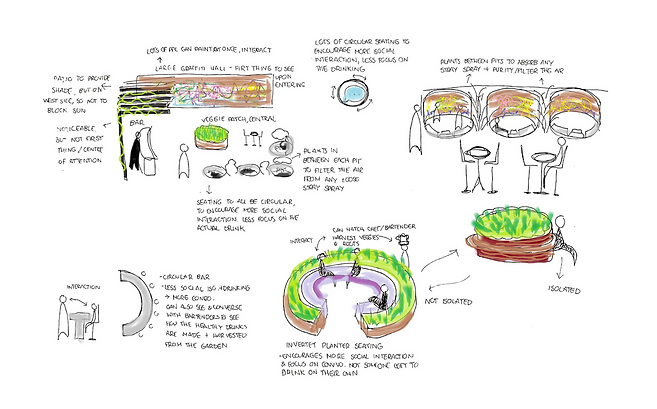 LOTS OF PPL CAN PAINT AT ONCE, INTERACT
LARGE GRAFFITI WALL - FIRT THING TO SEE
UPON
ENTERING
PATIO TO PROVIDE
SHADE, BUT ON
WEST SIDE, SO NOT TO
BLOCK SUN
NOTICEABLE,
BUT NOT FIRST
THING / CENTRE
OF ATTENTION
BAR
VEGGIE PATCH, CENTRAL
PLANTS IN
BETWEEN EACH PIT
TO FILTER THE AIR
FROM ANY LOOSE
STRAY SPRAY
SEATING TO ALL BE CIRCULAR,
TO ENCOURAGE MORE SOCIAL
INTERACTION. LESS FOCUS ON THE
ACTUAL DRINK.
LOTS OF CIRCULAR SEATING TO
ENCOURAGE MORE SOCIAL
INTERACTION, LESS FOCUS ON
THE DRINKING
PLANTS BETWEEN PITS TO ABSORB ANY
STRAY SPRAY + PURITY/FILTER THE AIR
INTERACTION
• CIRCULAR BAR
• LESS SOCIAL ISO. + DRINKING
→ MORE CONVO.
CAN ALSO SEE & CONVERSE
WITH BARTENDERS
HOW THE HEALTHY DRINKS
ARE MADE + HARVESTED
FROM THE GARDEN
INTERACT
CAN WATCH CHEF/BARTENDER
HARVEST VEGGIES
& ROOTS
INVERTET PLANTER SEATING
• ENCOURAGES MORE SOCIAL INTERACTION
& FOCUS ON CONVO. NOT SOMEONE LEFT TO
DRINK ON THEIR OWN
NOT ISOLATED
ISOLATED